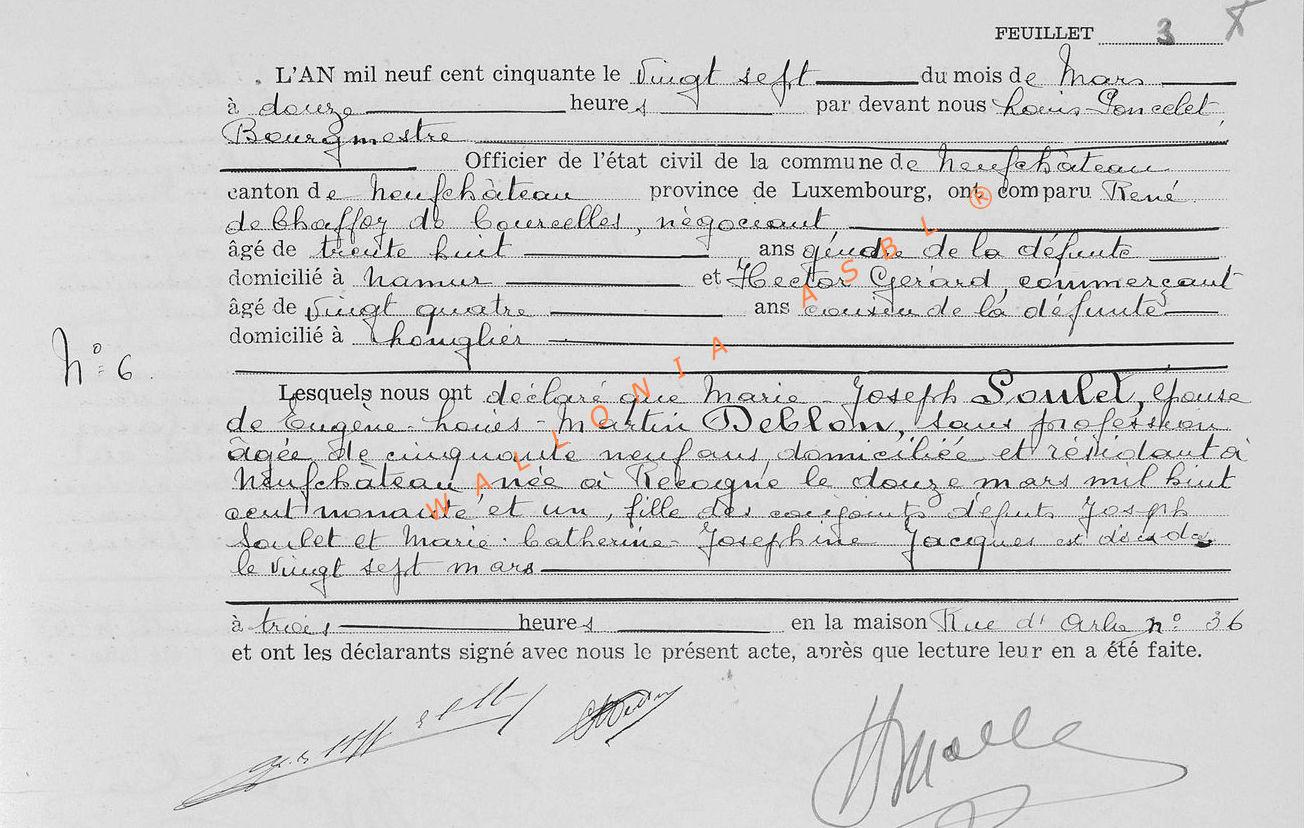 FEUILLET 3
L'AN mil neuf cent cinquante le vingt sept du mois de Mars
à douze heures par devant nous Louis Poncelet,
Bourgmestre
Officier de l'état civil de la commune de Neufchâteau
canton de Neufchâteau province de Luxembourg, ont comparu René
de Chaffoy de Courcelles, négociant,
âgé de trente huit ans gendre de la défunte
domicilié à Namur et Hector Gérard, commerçant
âgé de vingt quatre ans cousin de la défunte
domicilié à Longlier
N° 6
Lesquels nous ont déclaré que Marie-Joseph Soulet, épouse
de Eugène-Louis-Martin Deblon, sans profession
âgée de cinquante neuf ans, domiciliée et résidant à
Neufchâteau née à Recogne le douze mars mil huit
cent nonante et un, fille des conjoints défunts Joseph
Soulet et Marie-Catherine-Joséphine Jacques est décédée
le vingt sept mars
à trois heures en la maison Rue d'Arlon n° 36
et ont les déclarants signé avec nous le présent acte, après que lecture leur en a été faite.
WALLONIA ASBL ®